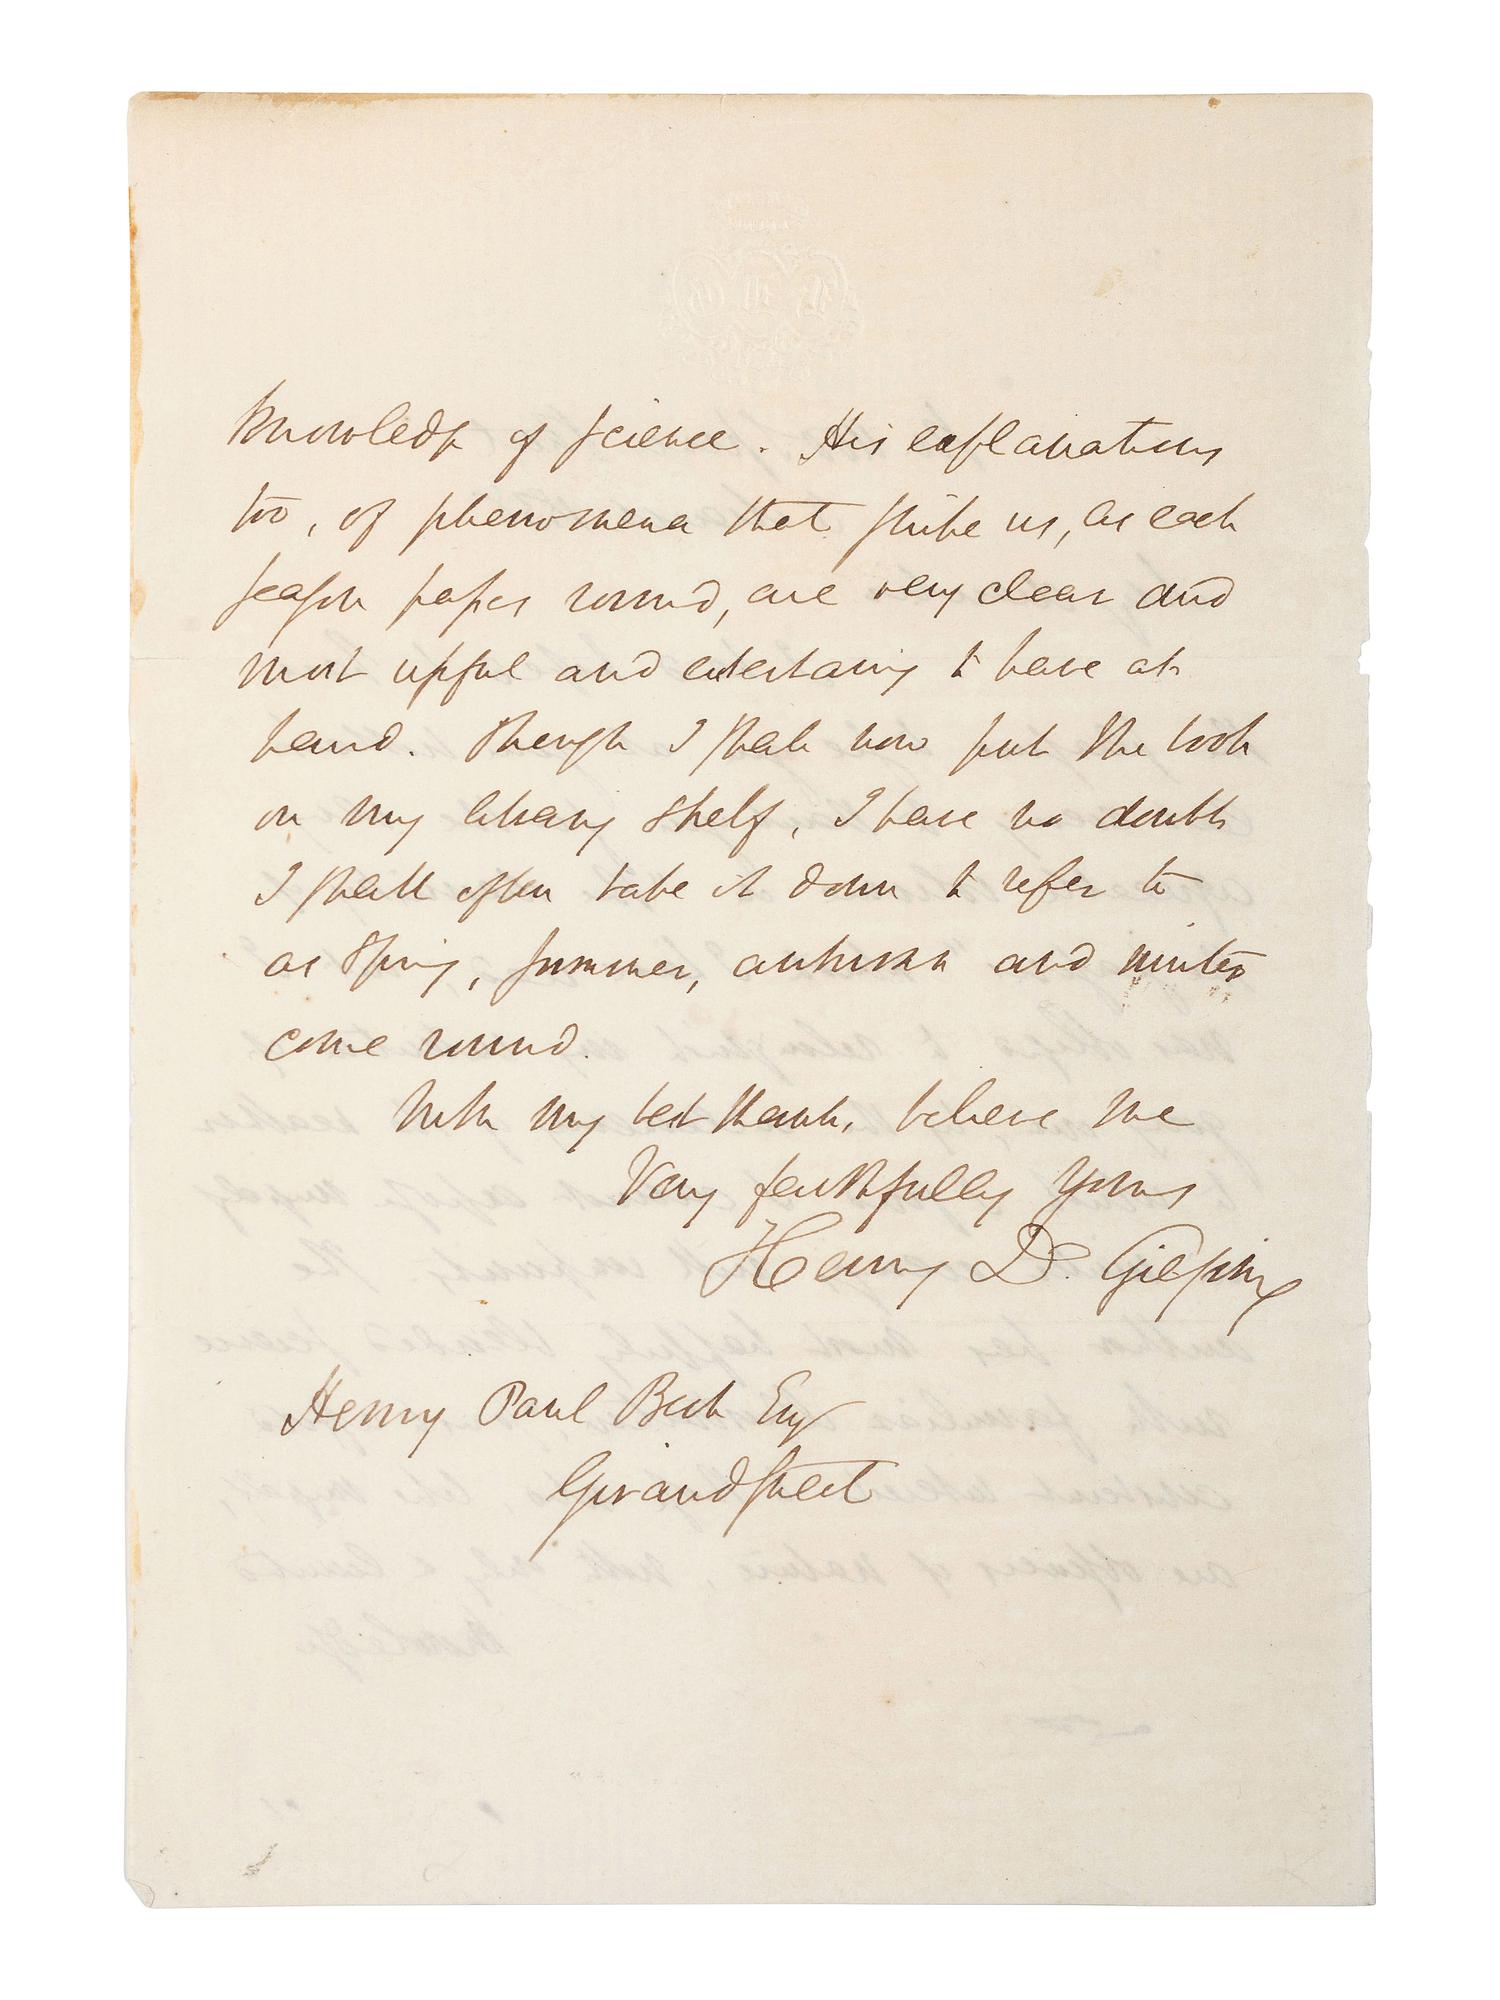 knowledge of science. His explanations
too, of phenomena that strike us, as each
season passes round, are very clear and
most useful and entertaining to have at
hand. Though I shall now put the book
on my library shelf, I have no doubt
I shall often take it down to refer to
as Spring, Summer, autumn and winter
come round.
With my best thanks, believe me
Very faithfully Yours
Henry D. Gilpin
Henry Paul Beck Esq
Girard Street